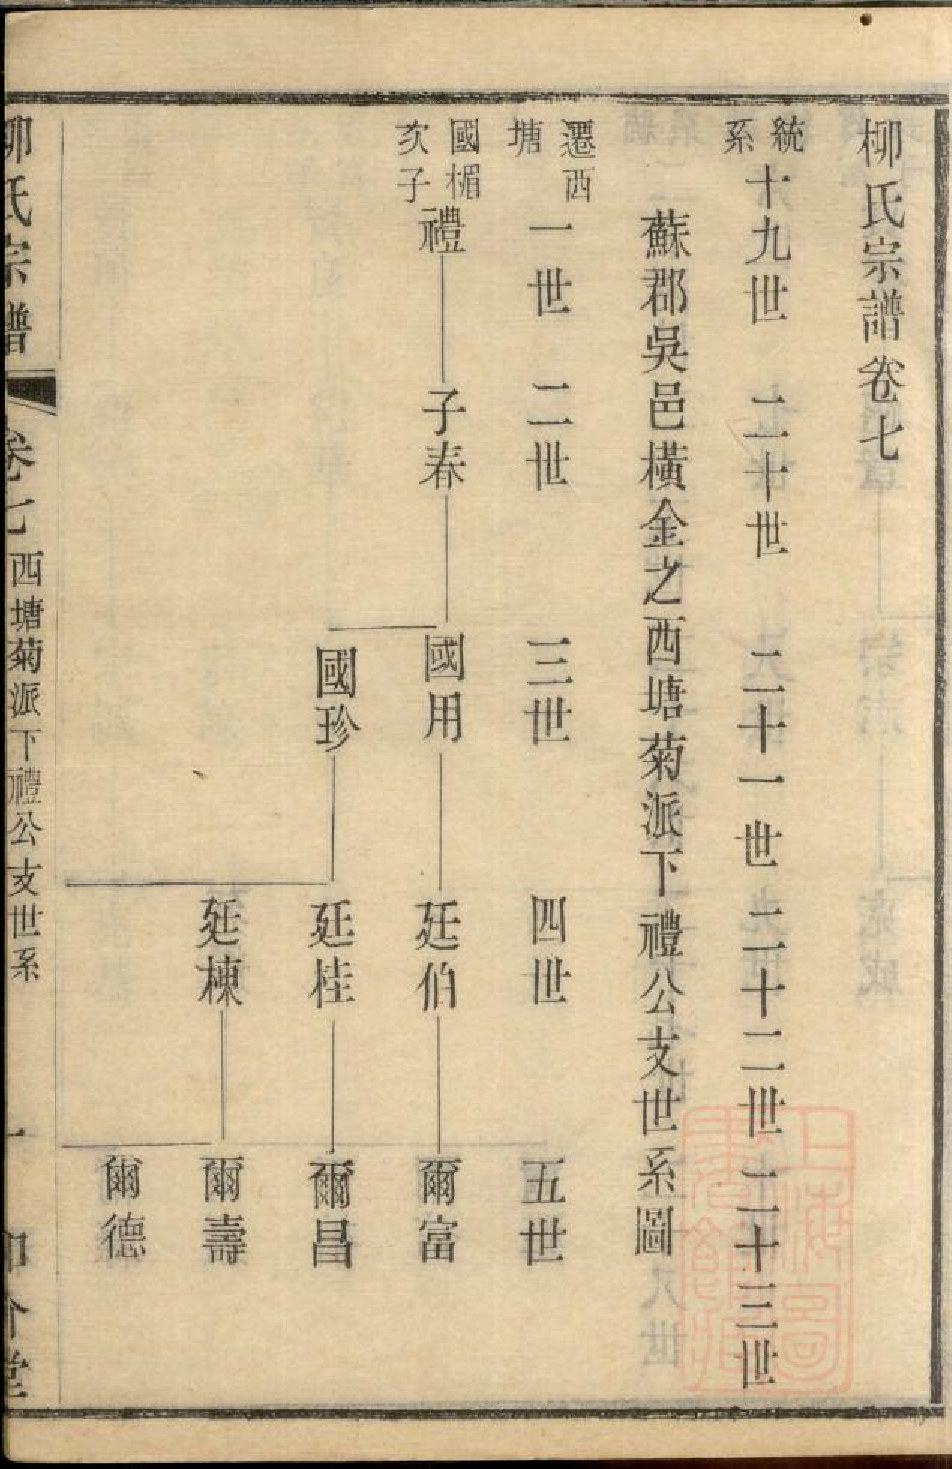 柳氏宗譜卷七
統系十九世 二十世 二十一世 二十二世 二十三世
蘇郡吳邑橫金之西塘菊派下禮公支世系圖
遷西塘 一世 二世 三世 四世 五世
國楣次子 禮 子春 國用 廷伯 爾富
國珍 廷桂 爾昌
廷棟 爾壽
爾德
柳氏宗譜 卷七 西塘菊派下禮公支世系 一